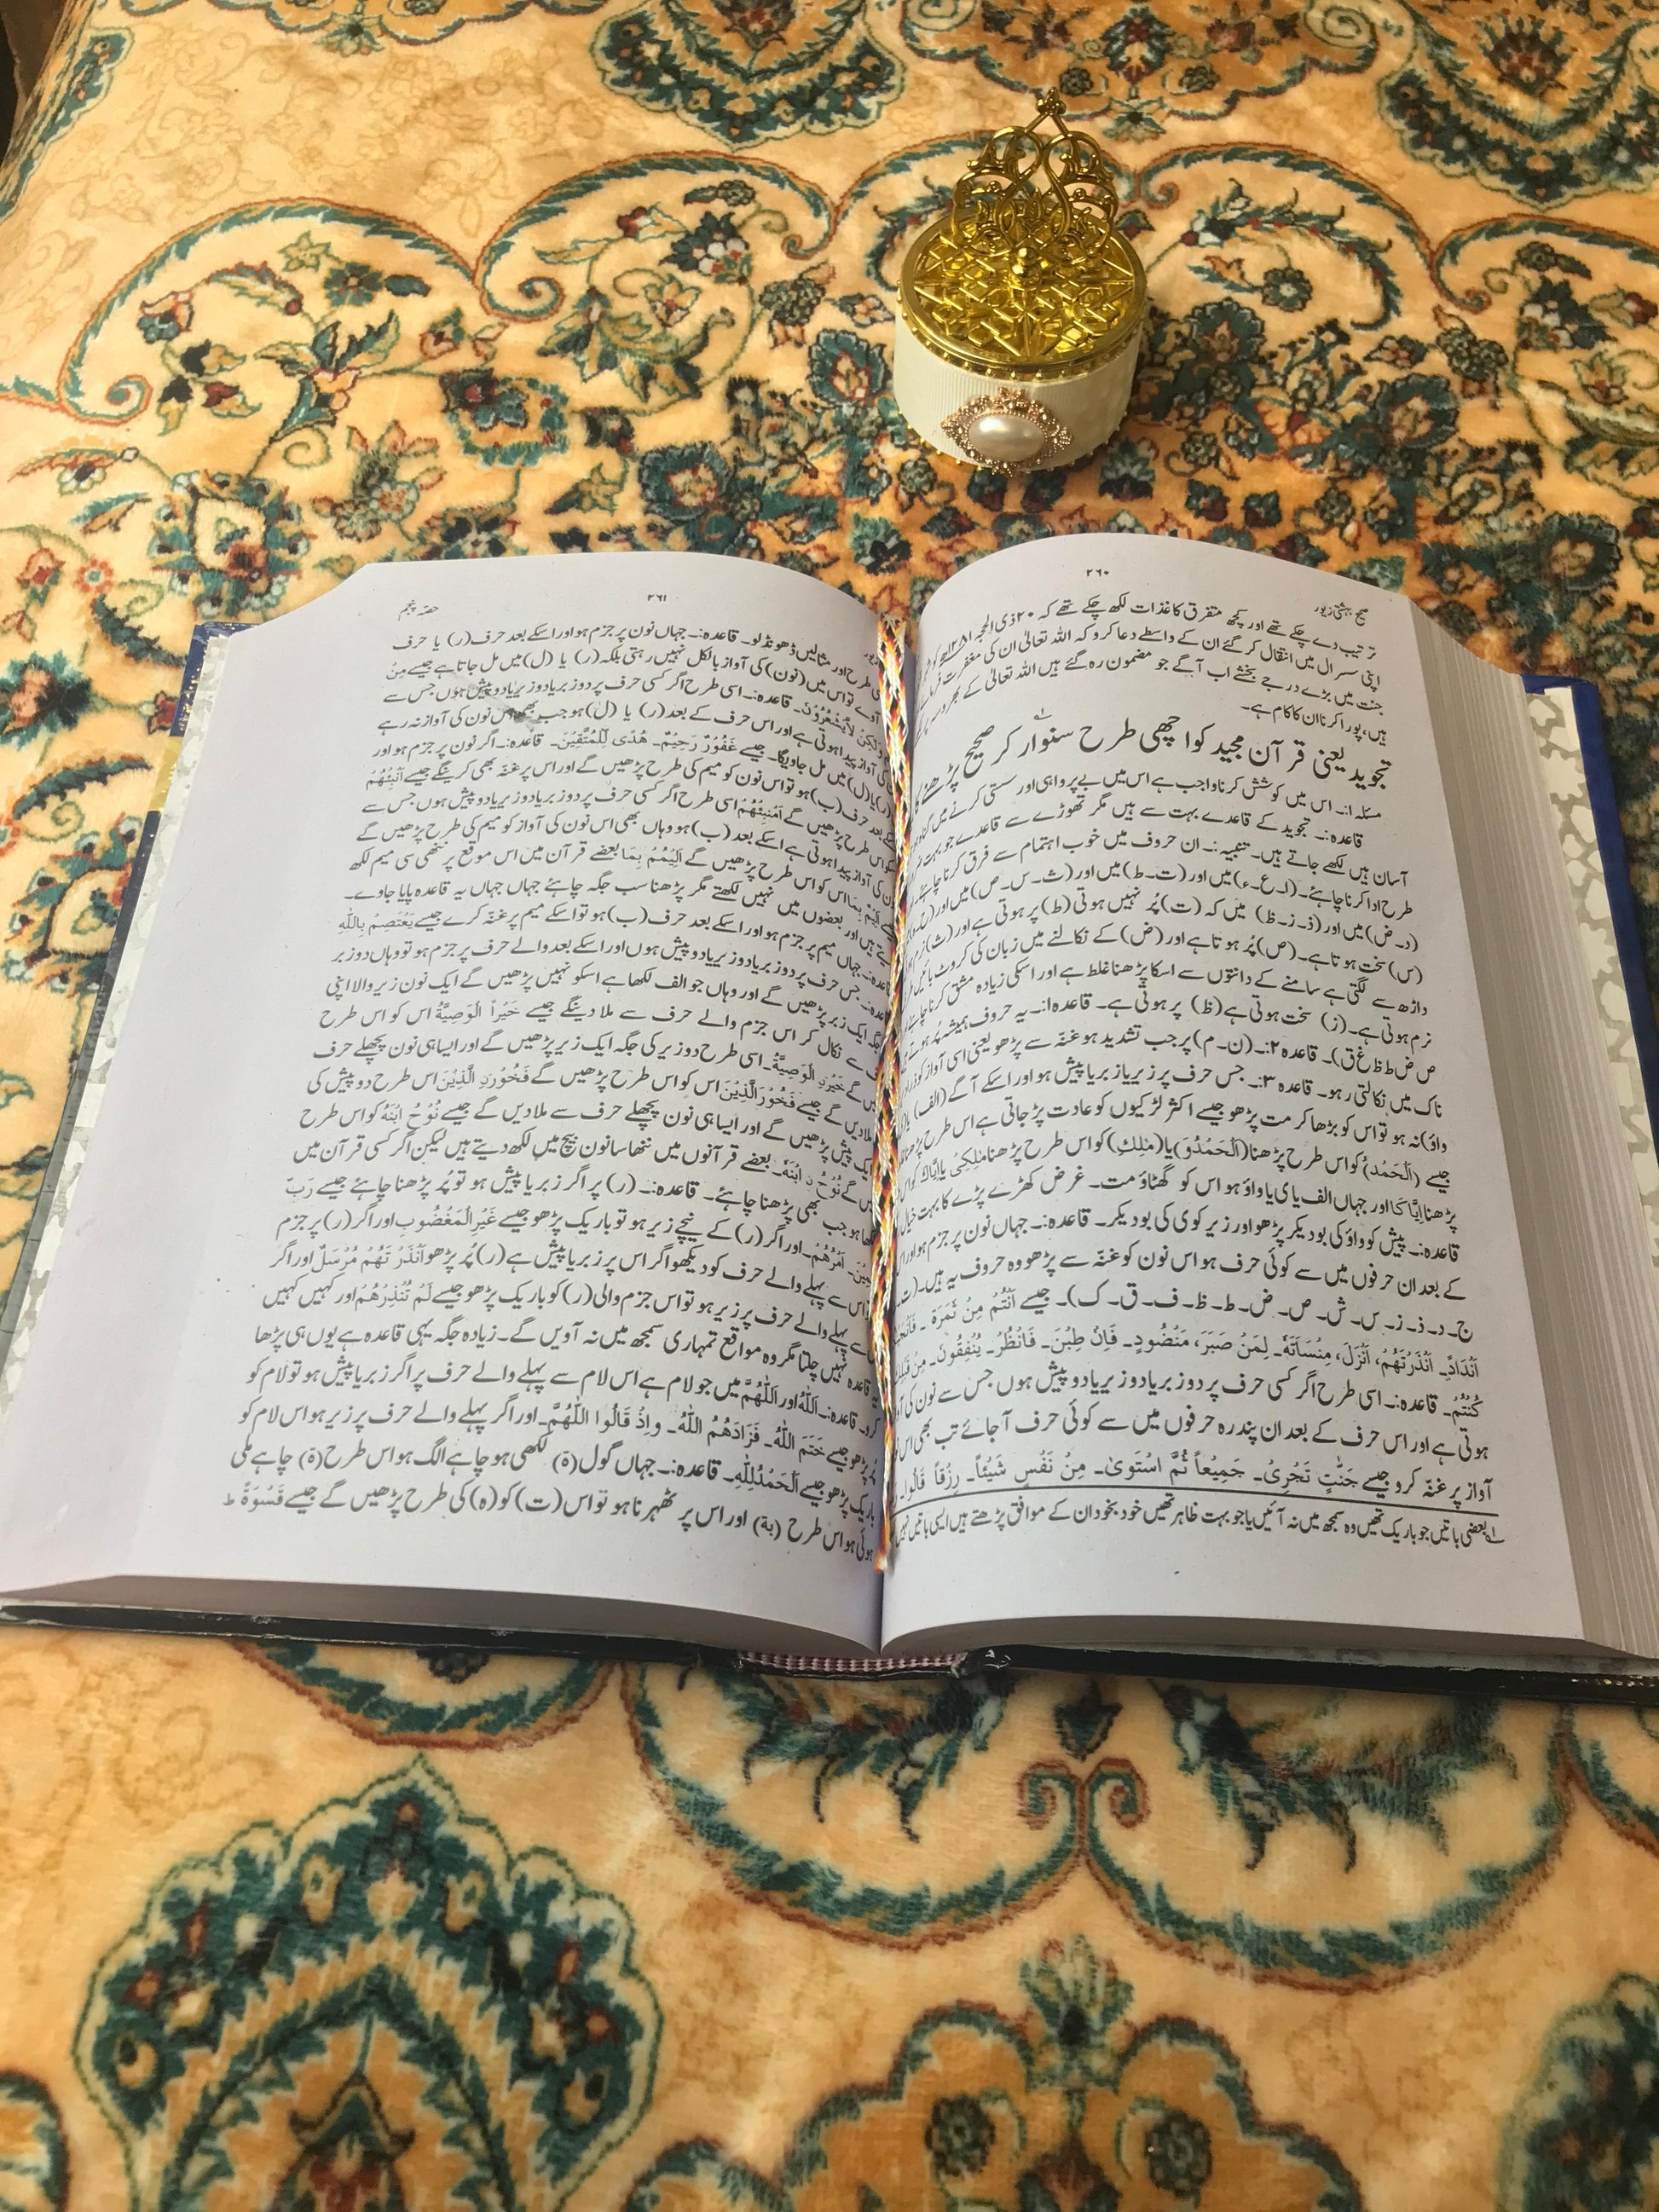 ۲۶۰
صحیح بہشتی زیور
ترتیب دے چکے تھے اور کچھ متفرق کاغذات لکھ چکے تھے کہ ۲۰ ذی الحجہ
اپنی سسرال میں انتقال کر گئے ان کے واسطے دعا کرو کہ اللہ تعالیٰ ان کی مغفرت
جنت میں بڑے درجے بخشے اب آگے جو مضمون رہ گئے ہیں اللہ تعالیٰ کے بھروسہ
ہیں، پورا کرنا ان کا کام ہے۔
تجوید یعنی قرآن مجید کو اچھی طرح سنوار کر صحیح پڑھنے کا
مسئلہ ۱:۔ اس میں کوشش کرنا واجب ہے اس میں بے پرواہی اور سستی کرنے میں گناہ
قاعدہ:۔ تجوید کے قاعدے بہت سے ہیں مگر تھوڑے سے قاعدے جو بہت
آسان ہیں لکھے جاتے ہیں۔ تنبیہ:۔ ان حروف میں خوب اہتمام سے فرق کرنا چاہئے
طرح ادا کرنا چاہئے۔ (ا۔ع۔ء) میں اور (ت۔ط) میں اور (ث۔س۔ص) میں اور
(د۔ض) میں اور (ذ۔ز۔ظ) میں کہ (ت) پُر نہیں ہوتی (ط) پر ہوتی ہے اور (ث) نرم
(س) سخت ہوتا ہے۔ (ص) پُر ہوتا ہے اور (ض) کے نکالنے میں زبان کی کروٹ بائیں
داڑھ سے لگتی ہے سامنے کے دانتوں سے اسکا پڑھنا غلط ہے اور اسکی زیادہ مشق کرنا چاہئے
نرم ہوتی ہے۔ (ز) سخت ہوتی ہے (ظ) پر ہوتی ہے۔ قاعدہ ۱:۔ یہ حروف ہمیشہ پُر ہوتے
ص ض ط ظ غ ق)۔ قاعدہ ۲:۔ (ن۔م) پر جب تشدید ہو غنہ سے پڑھو یعنی اسی آواز کو ذرا
ناک میں نکالتی رہو۔ قاعدہ ۳:۔ جس حرف پر زبر یا زیر یا پیش ہو اور اسکے آگے (الف) یا
واؤ) نہ ہو تو اس کو بڑھا کر مت پڑھو جیسے اکثر لڑکیوں کو عادت پڑ جاتی ہے اس طرح پڑھنا
جیسے (اَلْحَمْدُ) کو اس طرح پڑھنا (اَلْحَمْدُوْ) یا (مٰلِكِ) کو اس طرح پڑھنا مٰلِکِیْ یا اِیَّاكَ کو
پڑھنا اِیَّاکَا اور جہاں الف یا ی یا واؤ ہو اس کو گھٹاؤ مت۔ غرض کھڑے پڑے کا بہت خیال
قاعدہ:۔ پیش کو واؤ کی بو دیکر پڑھو اور زیر کو ی کی بو دیکر۔ قاعدہ:۔ جہاں نون پر جزم ہو اور
کے بعد ان حرفوں میں سے کوئی حرف ہو اس نون کو غنہ سے پڑھو وہ حروف یہ ہیں۔ (ت۔
ج۔ د۔ ذ۔ ز۔ س۔ ش۔ ص۔ ض۔ ط۔ ظ۔ ف۔ ق۔ ک)۔ جیسے اَنْتُمْ مِنْ ثَمَرَةٍ۔
اَنْدَادً۔ اَنْذَرْتَهُمْ، اَنْزَلَ، مِنْسَأَتَهٗ۔ لِمَنْ صَبَرَ، مَنْضُوْدٍ۔ فَاِنْ طِبْنَ۔ فَانْظُرْ۔ یُنْفِقُوْنَ۔ مِنْ قَبْلِكَ
كُنْتُمْ۔ قاعدہ:۔ اسی طرح اگر کسی حرف پر دو زبر یا دو زیر یا دو پیش ہوں جس سے نون کی
ہوتی ہے اور اس حرف کے بعد ان پندرہ حرفوں میں سے کوئی حرف آ جائے تب بھی اس
آواز پر غنہ کرو جیسے جَنّٰتٍ تَجْرِیْ۔ جَمِیْعاً ثُمَّ اسْتَوٰی۔ مِنْ نَفْسٍ شَیْئاً۔ رِزْقاً قَالُوْا۔
۱ بعضی باتیں جو باریک تھیں وہ سمجھ میں نہ آئیں یا جو بہت ظاہر تھیں خود بخود ان کے موافق پڑھتے ہیں ایسی باتیں نہیں
۲۶۱
حصّہ پنجم
طرح اور مثالیں ڈھونڈ لو۔ قاعدہ:۔ جہاں نون پر جزم ہو اور اسکے بعد حرف (ر) یا حرف
آوے تو اس میں (نون) کی آواز بالکل نہیں رہتی بلکہ (ر) یا (ل) میں مل جاتا ہے جیسے مِنْ
وَلٰكِنْ لَّایَشْعُرُوْنَ۔ قاعدہ:۔ اسی طرح اگر کسی حرف پر دو زبر یا دو زیر یا دو پیش ہوں جس سے
کی آواز پیدا ہوتی ہے اور اس حرف کے بعد (ر) یا (ل) ہو جب بھی اس نون کی آواز نہ رہے
(ر) یا (ل) میں مل جاویگا۔ جیسے غَفُوْرٌ رَحِیْمٌ۔ هُدًی لِّلْمُتَّقِیْنَ۔ قاعدہ:۔ اگر نون پر جزم ہو اور
بعد حرف (ب) ہو تو اس نون کو میم کی طرح پڑھیں گے اور اس پر غنہ بھی کریںگے جیسے اَنْبِئْهُمْ
اس طرح پڑھیں گے اَمْبِئْهُمْ اسی طرح اگر کسی حرف پر دو زبر یا دو زیر یا دو پیش ہوں جس سے
کی آواز پیدا ہوتی ہے اسکے بعد (ب) ہو وہاں بھی اس نون کی آواز کو میم کی طرح پڑھیں گے
اَلِیْمٌ بِمَا اس کو اس طرح پڑھیں گے اَلِیْمُمْ بِمَا بعضے قرآن میں اس موقع پر ننھی سی میم لکھ
ہیں اور بعضوں میں نہیں لکھتے مگر پڑھنا سب جگہ چاہئے جہاں جہاں یہ قاعدہ پایا جاوے۔
قاعدہ:۔ جہاں میم پر جزم ہو اور اسکے بعد حرف (ب) ہو تو اسکے میم پر غنہ کرے جیسے یَعْتَصِمْ بِاللّٰهِ
قاعدہ:۔ جس حرف پر دو زبر یا دو زیر یا دو پیش ہوں اور اسکے بعد والے حرف پر جزم ہو تو وہاں دو زبر
جگہ ایک زبر پڑھیں گے اور وہاں جو الف لکھا ہے اسکو نہیں پڑھیں گے ایک نون زیر والا اپنی
سے نکال کر اس جزم والے حرف سے ملا دینگے جیسے خَیْراً الْوَصِیَّةُ اس کو اس طرح
گے خَیْرَنِ الْوَصِیَّةُ۔ اسی طرح دو زیر کی جگہ ایک زیر پڑھیں گے اور ایسا ہی نون پچھلے حرف
ملا دیں گے جیسے فَخُوْرٍ الَّذِیْنَ اس کو اس طرح پڑھیں گے فَخُوْرِنِ الَّذِیْنَ اس طرح دو پیش کی
ایک پیش پڑھیں گے اور ایسا ہی نون پچھلے حرف سے ملا دیں گے جیسے نُوْحٌ ابْنَهٗ کو اس طرح
گے نُوْحُ نِ ابْنَهٗ۔ بعضے قرآنوں میں ننھا سا نون بیچ میں لکھ دیتے ہیں لیکن اگر کسی قرآن میں
لکھا ہو جب بھی پڑھنا چاہئے۔ قاعدہ:۔ (ر) پر اگر زبر یا پیش ہو تو پُر پڑھنا چاہئے جیسے رَبِّ
اَمْرُهُمْ۔ اور اگر (ر) کے نیچے زیر ہو تو باریک پڑھو جیسے غَیْرِالْمَغْضُوْبِ اور اگر (ر) پر جزم
اس سے پہلے والے حرف کو دیکھو اگر اس پر زبر یا پیش ہے (ر) پُر پڑھو اَنْذَرْ تَهُمْ مُرْسَلٌ اور اگر
سے پہلے والے حرف پر زیر ہو تو اس جزم والی (ر) کو باریک پڑھو جیسے لَمْ تُنْذِرْهُمْ اور کہیں کہیں
یہ قاعدہ نہیں چلتا مگر وہ مواقع تمہاری سمجھ میں نہ آویں گے۔ زیادہ جگہ یہی قاعدہ ہے یوں ہی پڑھا
کرو۔ قاعدہ:۔ اَللّٰهُ اور اَللّٰهُمَّ میں جو لام ہے اس لام سے پہلے والے حرف پر اگر زبر یا پیش ہو تو لام کو
پُر پڑھو جیسے خَتَمَ اللّٰهُ۔ فَزَادَهُمُ اللّٰهُ۔ وَاِذْ قَالُوا اللّٰهُمَّ۔ اور اگر پہلے والے حرف پر زیر ہو اس لام کو
باریک پڑھو جیسے اَلْحَمْدُلِلّٰهِ۔ قاعدہ:۔ جہاں گول (ة) لکھی ہو چاہے الگ ہو اس طرح (ة) چاہے ملی
ہوئی ہو اس طرح (ـة) اور اس پر ٹھہرنا ہو تو اس (ت) کو (ہ) کی طرح پڑھیں گے جیسے قَسْوَةً ط